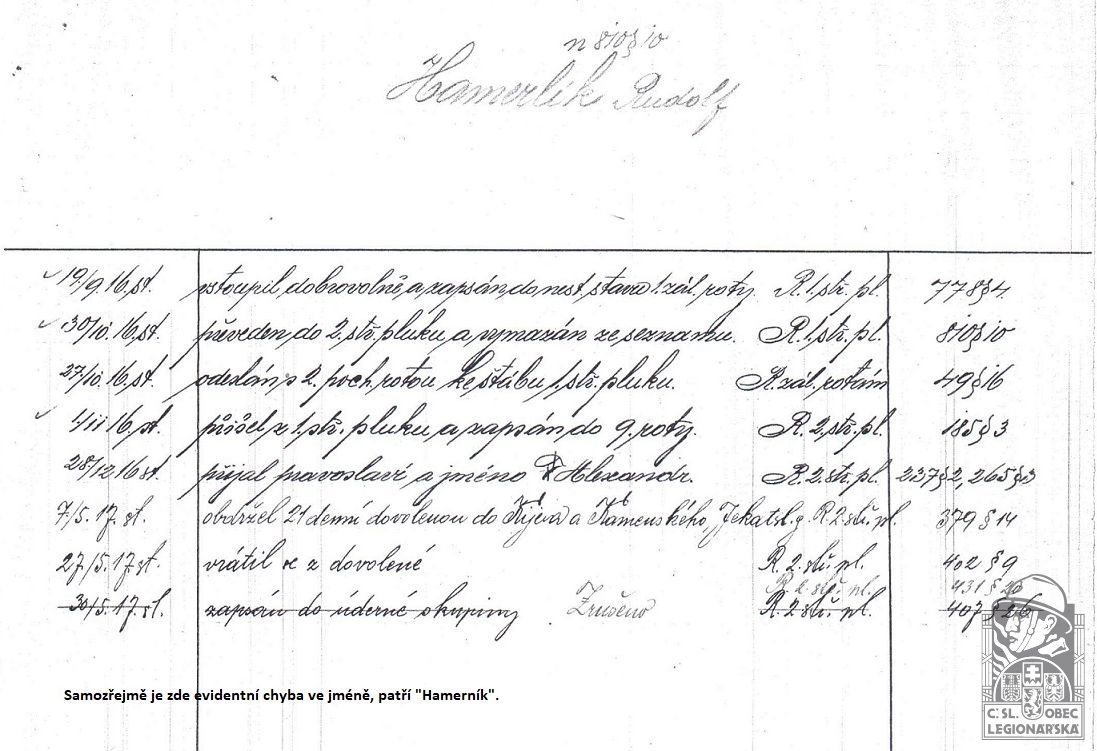 n 810§10
Hamerlík Rudolf
19/9.16.st. vstoupil dobrovolně a zapsán do nest. stavu 1. zál. roty. R. 1. stř. pl. 778§4.
30/10.16.st. převeden do 2. stř. pluku a vymazán ze seznamu. R. 1. stř. pl. 810§10
27/10.16.st. odeslán s 2. poch. rotou ke štábu 1. stř. pluku. R. zál. rotám 49§16
4/11 16.st. přišel z 1. stř. pluku a zapsán do 9. roty. R. 2. stř. pl. 185§3
28/12 16 st. přijal pravoslaví a jméno Alexandr. R. 2. stř. pl. 237§2, 265§3
7/5. 17. st. obdržel 21 denní dovolenou do Kijeva a Kamenského, Jekatsl. g. R. 2. stř. pl. 379 § 14
27/5. 17. st. vrátil se z dovolené R. 2. stř. pl. 402 § 9
R. 2. stř. pl. 431 § 20
30/5. 17. st. zapsán do úderné skupiny Zrušeno R. 2 stř. pl. 407 § 26
Samozřejmě je zde evidentní chyba ve jméně, patří "Hamerník".
Č. SL. OBEC
LEGIONÁŘSKÁ